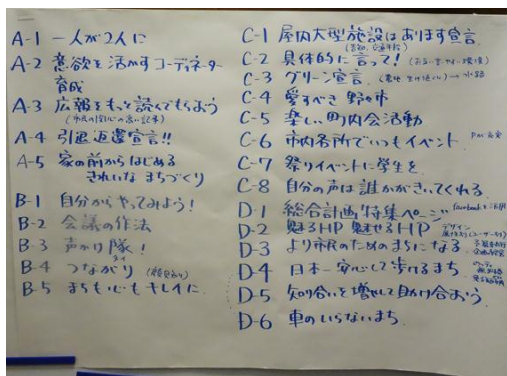 A-1 一人が2人に
A-2 意欲を活かすコーディネーター
育成
A-3 広報をもっと読んでもらおう
(市民の関心の高い記事)
A-4 引退返還宣言!!
A-5 家の前からはじめる
きれいなまちづくり
B-1 自分からやってみよう!
B-2 会議の作法
B-3 声かけ隊!
B-4 つながり
B-5 まちも心もキレイに
C-1 屋内大型施設はあります宣言
C-2 具体的に言って!
C-3 グリーン宣言
C-4 愛すべき野々市
C-5 楽しい町内会活動
C-6 市内各所でいつもイベント
C-7 祭りイベントに学生を
C-8 自分の声は誰かがきいてくれる
D-1 総合計画特集ページ
D-2 見るHP 魅せるHP
デザイン
D-3 より市民のためのまちになる
D-4 日本一安心して歩けるまち
D-5 知り合いを増やして助け合おう
D-6 車のいらないまち